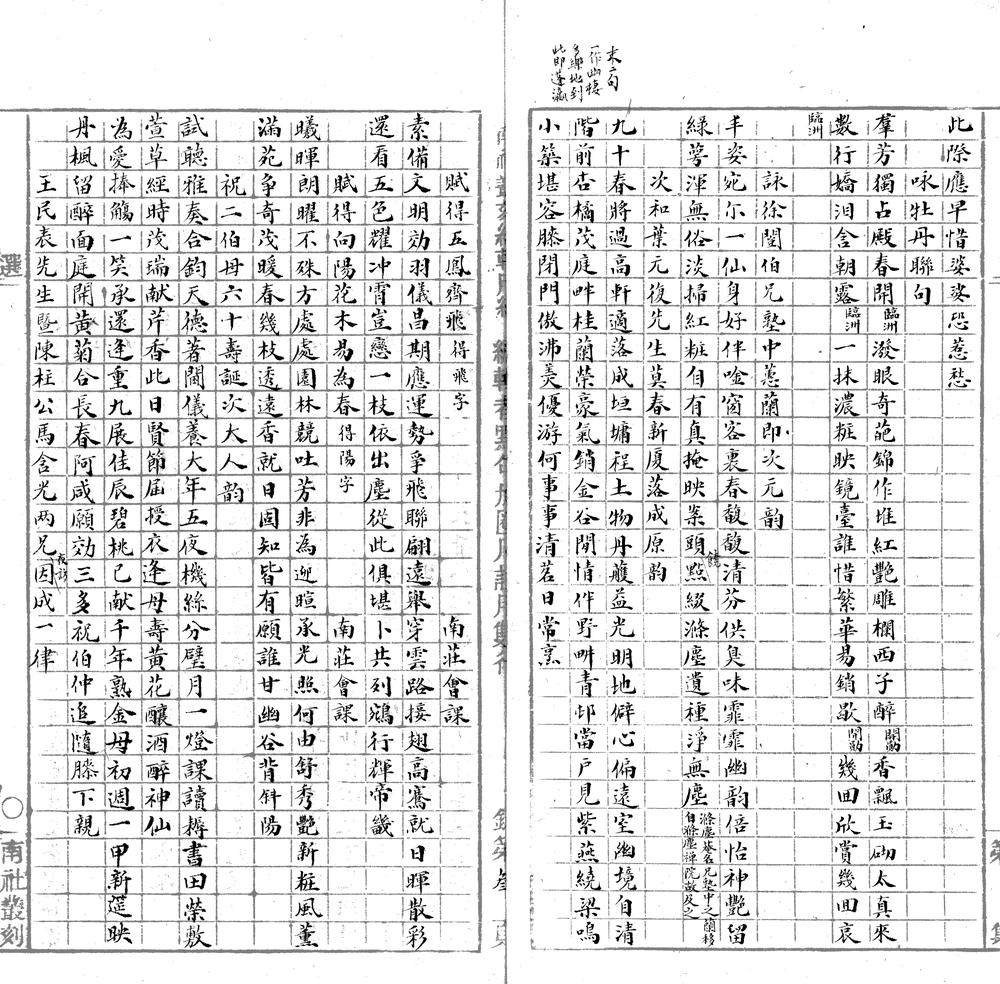 末二句
一作幽棲
多樂地到
此即蓬瀛
此際應早惜婆娑恐惹愁
咏牡丹聯句
羣芳獨占殿春開臨洲潑眼奇葩錦作堆紅艷雕欄西子醉開勛香飄玉砌太真來
數行嬌泪含朝露臨洲一抹濃粧映鏡臺誰惜繁華易銷歇開勛幾回欣賞幾回哀
臨洲
詠徐閨伯兄塾中蕙蘭即次元韵
丰姿宛尓一仙身好伴唫窗客裏春馥馥清芬供臭味霏霏幽韵倍怡神艷留
綠萼渾無俗淡掃紅粧自有真掩映案頭饒點綴滌塵遺種淨無塵滌塵菴名兄塾中之蘭移自滌塵禪院故及之
次和葉元復先生莫春新廈落成原韵
九十春將過高軒適落成垣墉程土物丹雘益光明地僻心偏遠室幽境自清
階前杏橘茂庭畔桂蘭榮豪氣銷金谷閒情伴野畊青邨當戶見紫燕繞梁鳴
小築堪容膝閉門傲沸羮優游何事事清茗日常烹
賦得五鳳齊飛得飛字 南莊會課
素備文明効羽儀昌期應運勢爭飛聯翩遠舉穿雲路接翅高騫就日暉散彩
還看五色耀冲霄豈戀一枝依出塵從此俱堪卜共列鵷行輝帝畿
賦得向陽花木易為春得陽字 南莊會課
曦暉朗曜不殊方處處園林競吐芳非為迎暄承光照何由舒秀艷新粧風薰
滿苑爭奇茂暖春幾枝透遠香就日固知皆有願誰甘幽谷背斜陽
祝二伯母六十壽誕次大人韵
試聽雅奏合鈞天德著閫儀養大年五夜機絲分璧月一燈課讀耨書田榮敷
萱草經時茂瑞献芹香此日賢節屆授衣逢母壽黃花釀酒醉神仙
為愛捧觴一笑承還逢重九展佳辰碧桃已献千年熟金母初週一甲新筵映
丹楓留醉面庭開黃菊合長春阿咸願効三多祝伯仲追隨膝下親
王民表先生暨陳柱公馬含光两兄夜訪因成一律
選
南社叢刻